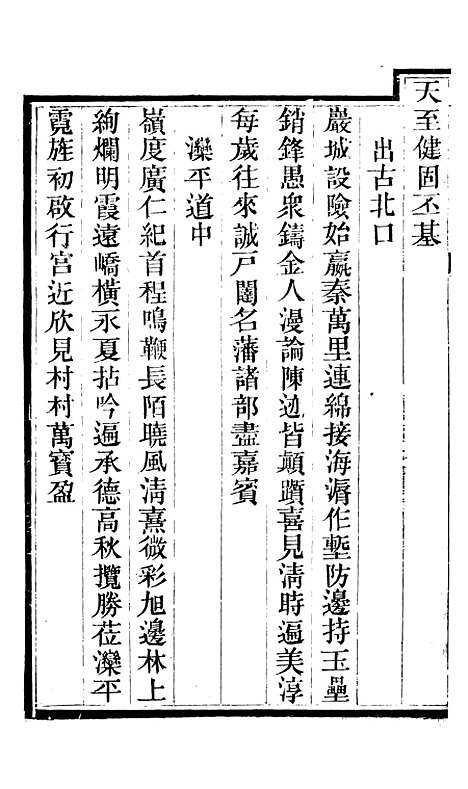 天至健固丕基
出古北口
巖城設險始嬴秦萬里連綿接海漘作塹防邊持玉壘
銷鋒愚衆鑄金人漫論陳迹皆顛躓喜見淸時遍美淳
每歲往來誠戸闥名藩諸部盡嘉賓
灤平道中
嶺度廣仁紀首程鳴鞭長陌曉風淸熹微彩旭邊林上
絢爛明霞遠嶠橫永夏拈吟遍承德高秋攬勝莅灤平
霓旌初啟行宮近欣見村村萬寶盈